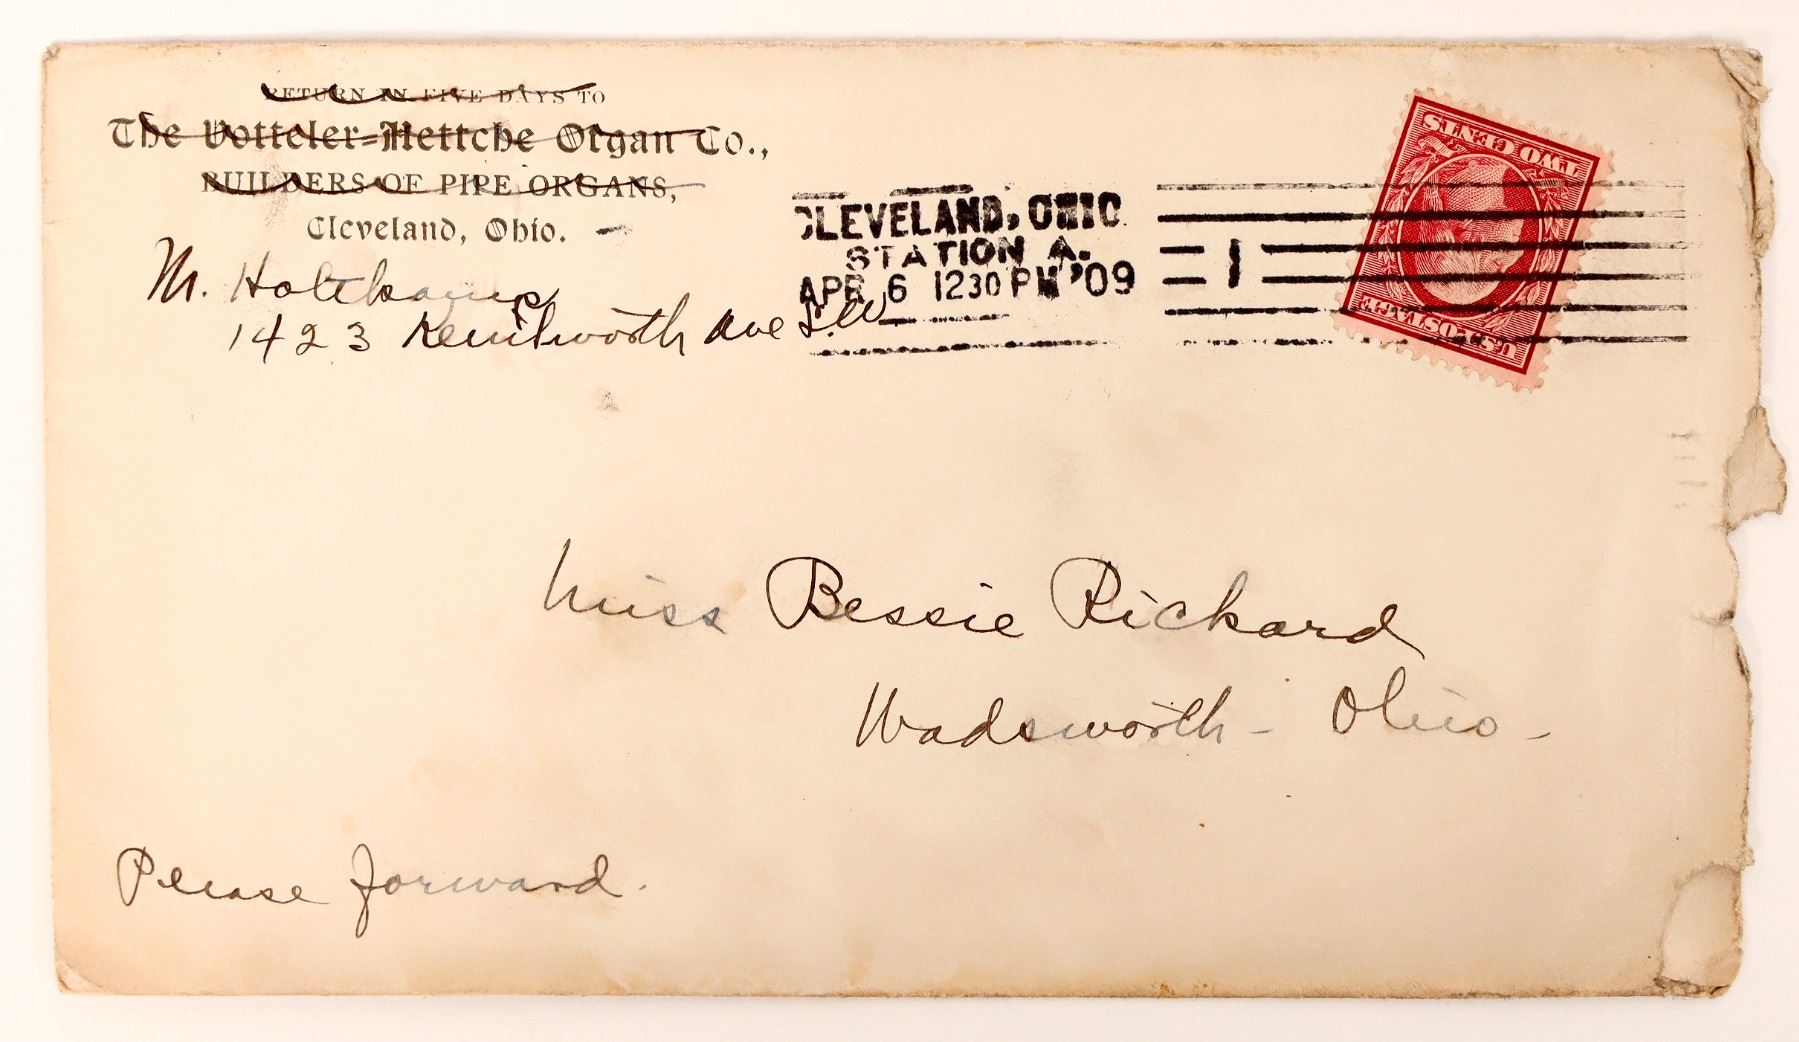 RETURN IN FIVE DAYS TO
The Votteler-Hettche Organ Co.,
BUILDERS OF PIPE ORGANS,
Cleveland, Ohio.
M. Holtkamp
1423 Kenilworth Ave S.W
CLEVELAND, OHIO
STATION A.
APR 6 1230 PM '09
1
TWO CENTS
U.S. POSTAGE
Miss Bessie Rickard
Wadsworth - Ohio -
Please forward.